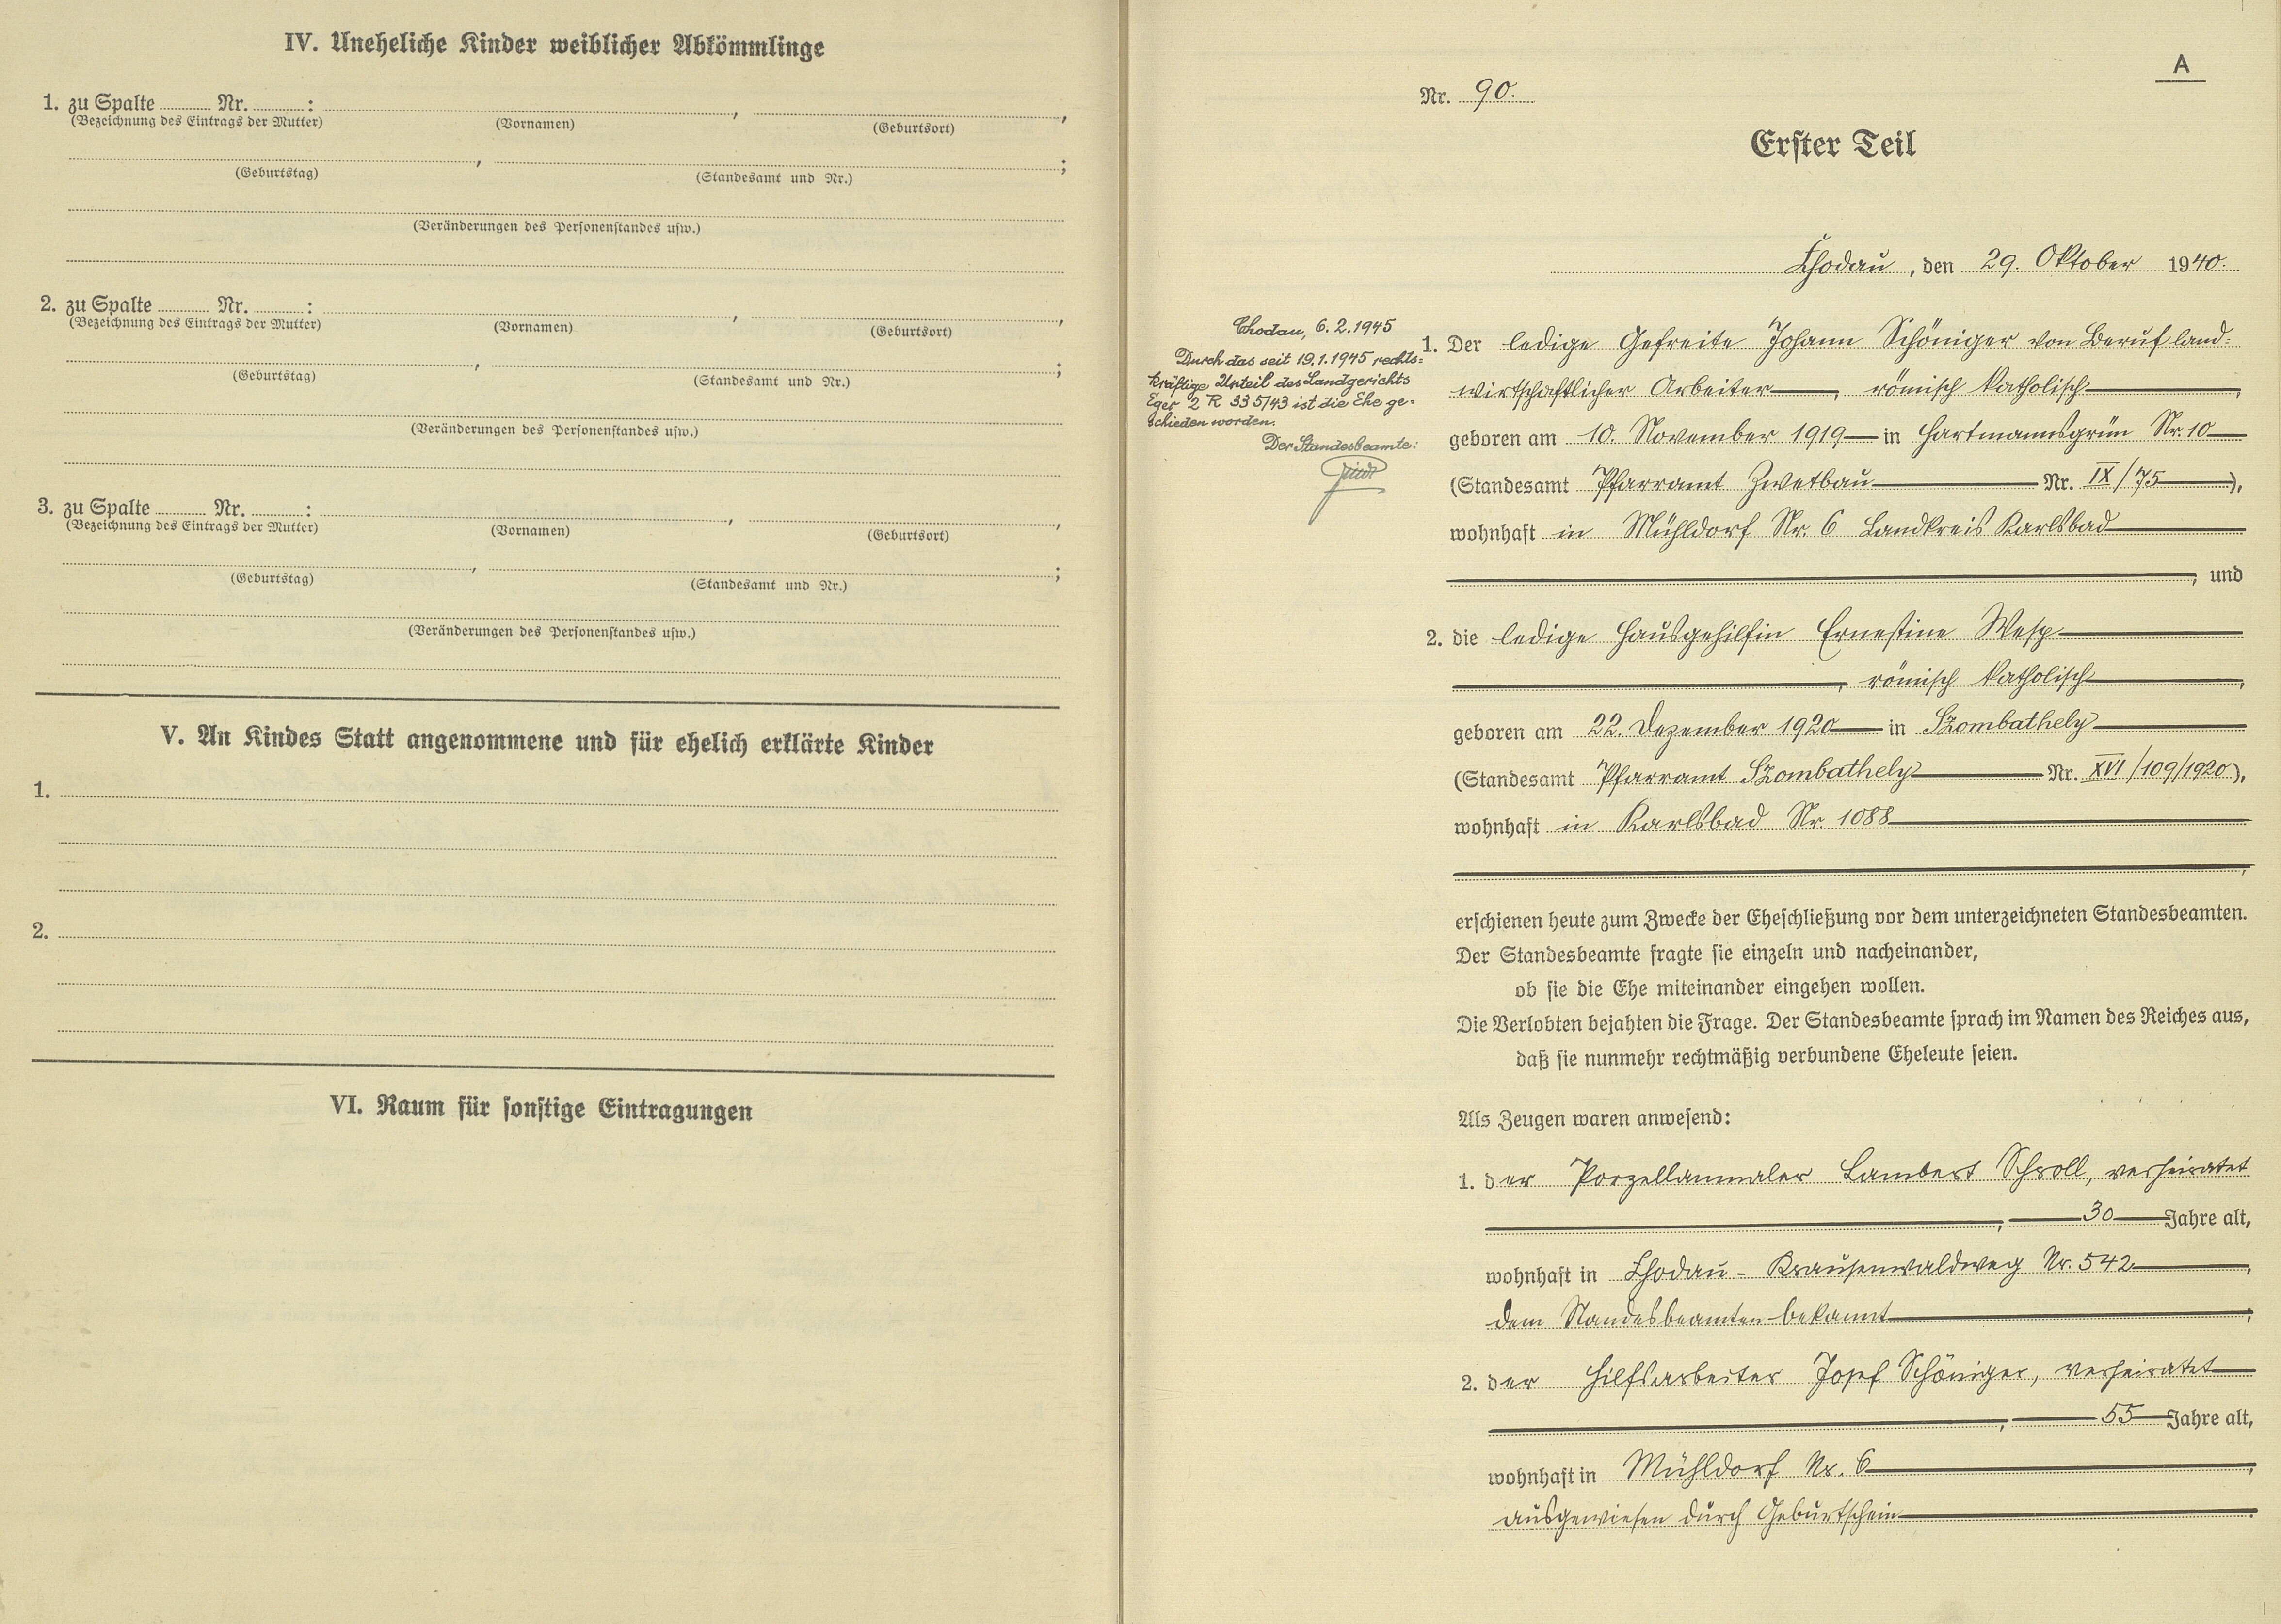 IV. Uneheliche Kinder weiblicher Abkömmlinge
1. zu Spalte ........ Nr. ........ : ........ , ........ ,
(Bezeichnung des Eintrags der Mutter) (Vornamen) (Geburtsort)
........ , ........ ;
(Geburtstag) (Standesamt und Nr.)
(Veränderungen des Personenstandes usw.)
2. zu Spalte ........ Nr. ........ : ........ , ........ ,
(Bezeichnung des Eintrags der Mutter) (Vornamen) (Geburtsort)
........ , ........ ;
(Geburtstag) (Standesamt und Nr.)
(Veränderungen des Personenstandes usw.)
3. zu Spalte ........ Nr. ........ : ........ , ........ ,
(Bezeichnung des Eintrags der Mutter) (Vornamen) (Geburtsort)
........ , ........ ;
(Geburtstag) (Standesamt und Nr.)
(Veränderungen des Personenstandes usw.)
V. An Kindes Statt angenommene und für ehelich erklärte Kinder
1.
2.
VI. Raum für sonstige Eintragungen
A
Nr. 90.
Erster Teil
Chodau, den 29. Oktober 1940.
Chodau, 6.2.1945
Durch das seit 19.1.1945 rechts=
kräftige Urteil des Landgerichts
Eger 2 R 335/43 ist die Ehe ge-
schieden worden.
Der Standesbeamte:
1. Der ledige Gefreite Johann Schöniger von Beruf land=
wirtschaftlicher Arbeiter, römisch katholisch,
geboren am 10. November 1919 in Hartmannsgrün Nr. 10
(Standesamt Pfarramt Zwetbau Nr. IX/75),
wohnhaft in Mühldorf Nr. 6 Landkreis Karlsbad
, und
2. die ledige Hausgehilfin Ernestine Wesp
, römisch katholisch,
geboren am 22. Dezember 1920 in Szombathely
(Standesamt Pfarramt Szombathely Nr. XVI/109/1920),
wohnhaft in Karlsbad Nr. 1088
,
erschienen heute zum Zwecke der Eheschließung vor dem unterzeichneten Standesbeamten.
Der Standesbeamte fragte sie einzeln und nacheinander,
ob sie die Ehe miteinander eingehen wollen.
Die Verlobten bejahten die Frage. Der Standesbeamte sprach im Namen des Reiches aus,
daß sie nunmehr rechtmäßig verbundene Eheleute seien.
Als Zeugen waren anwesend:
1. der Porzellanmaler Lambert Schroll, verheiratet
, 30 Jahre alt,
wohnhaft in Chodau - Krausenwaldweg Nr. 542,
dem Standesbeamten bekannt;
2. der Hilfsarbeiter Josef Schöniger, verheiratet
, 55 Jahre alt,
wohnhaft in Mühldorf Nr. 6,
ausgewiesen durch Geburtschein.